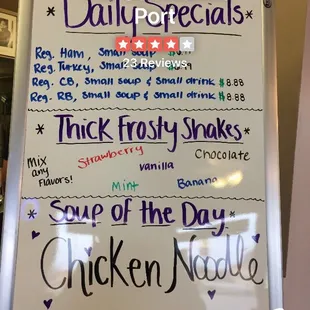 *Daily Specials*
Port
Reg. Ham, Small soup
23 Reviews
Reg. Turkey, Small soup
Reg. CB, small soup & small drink $8.88
Reg. RB, small soup & small drink $8.88
* Thick Frosty Shakes *
Mix any Flavors!
Strawberry
vanilla
Chocolate
Mint
Banana
* Soup of the Day *
Chicken Noodle